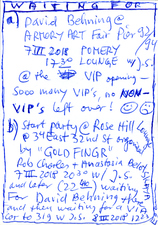 WAITING FOR
a) David Behning @
ARMORY ART Fair Pier 92/94
7 III 2018 POMERY
17 30 LOUNGE W/ J.S.
@ the VIP opening —
Sooo many VIP's, no NON-
VIP's left over! 😊
b) Start Party @ Rose Hill
@ 3rd East 32nd St
by "GOLD FINGR"
Rob Charles + Anastasia
7 III 2018 20 30 W/ J.S.
and later (22 40) waiting
For David Behning + he
and they waiting for a VIP
car to 319 W J.S. 8 III 2018